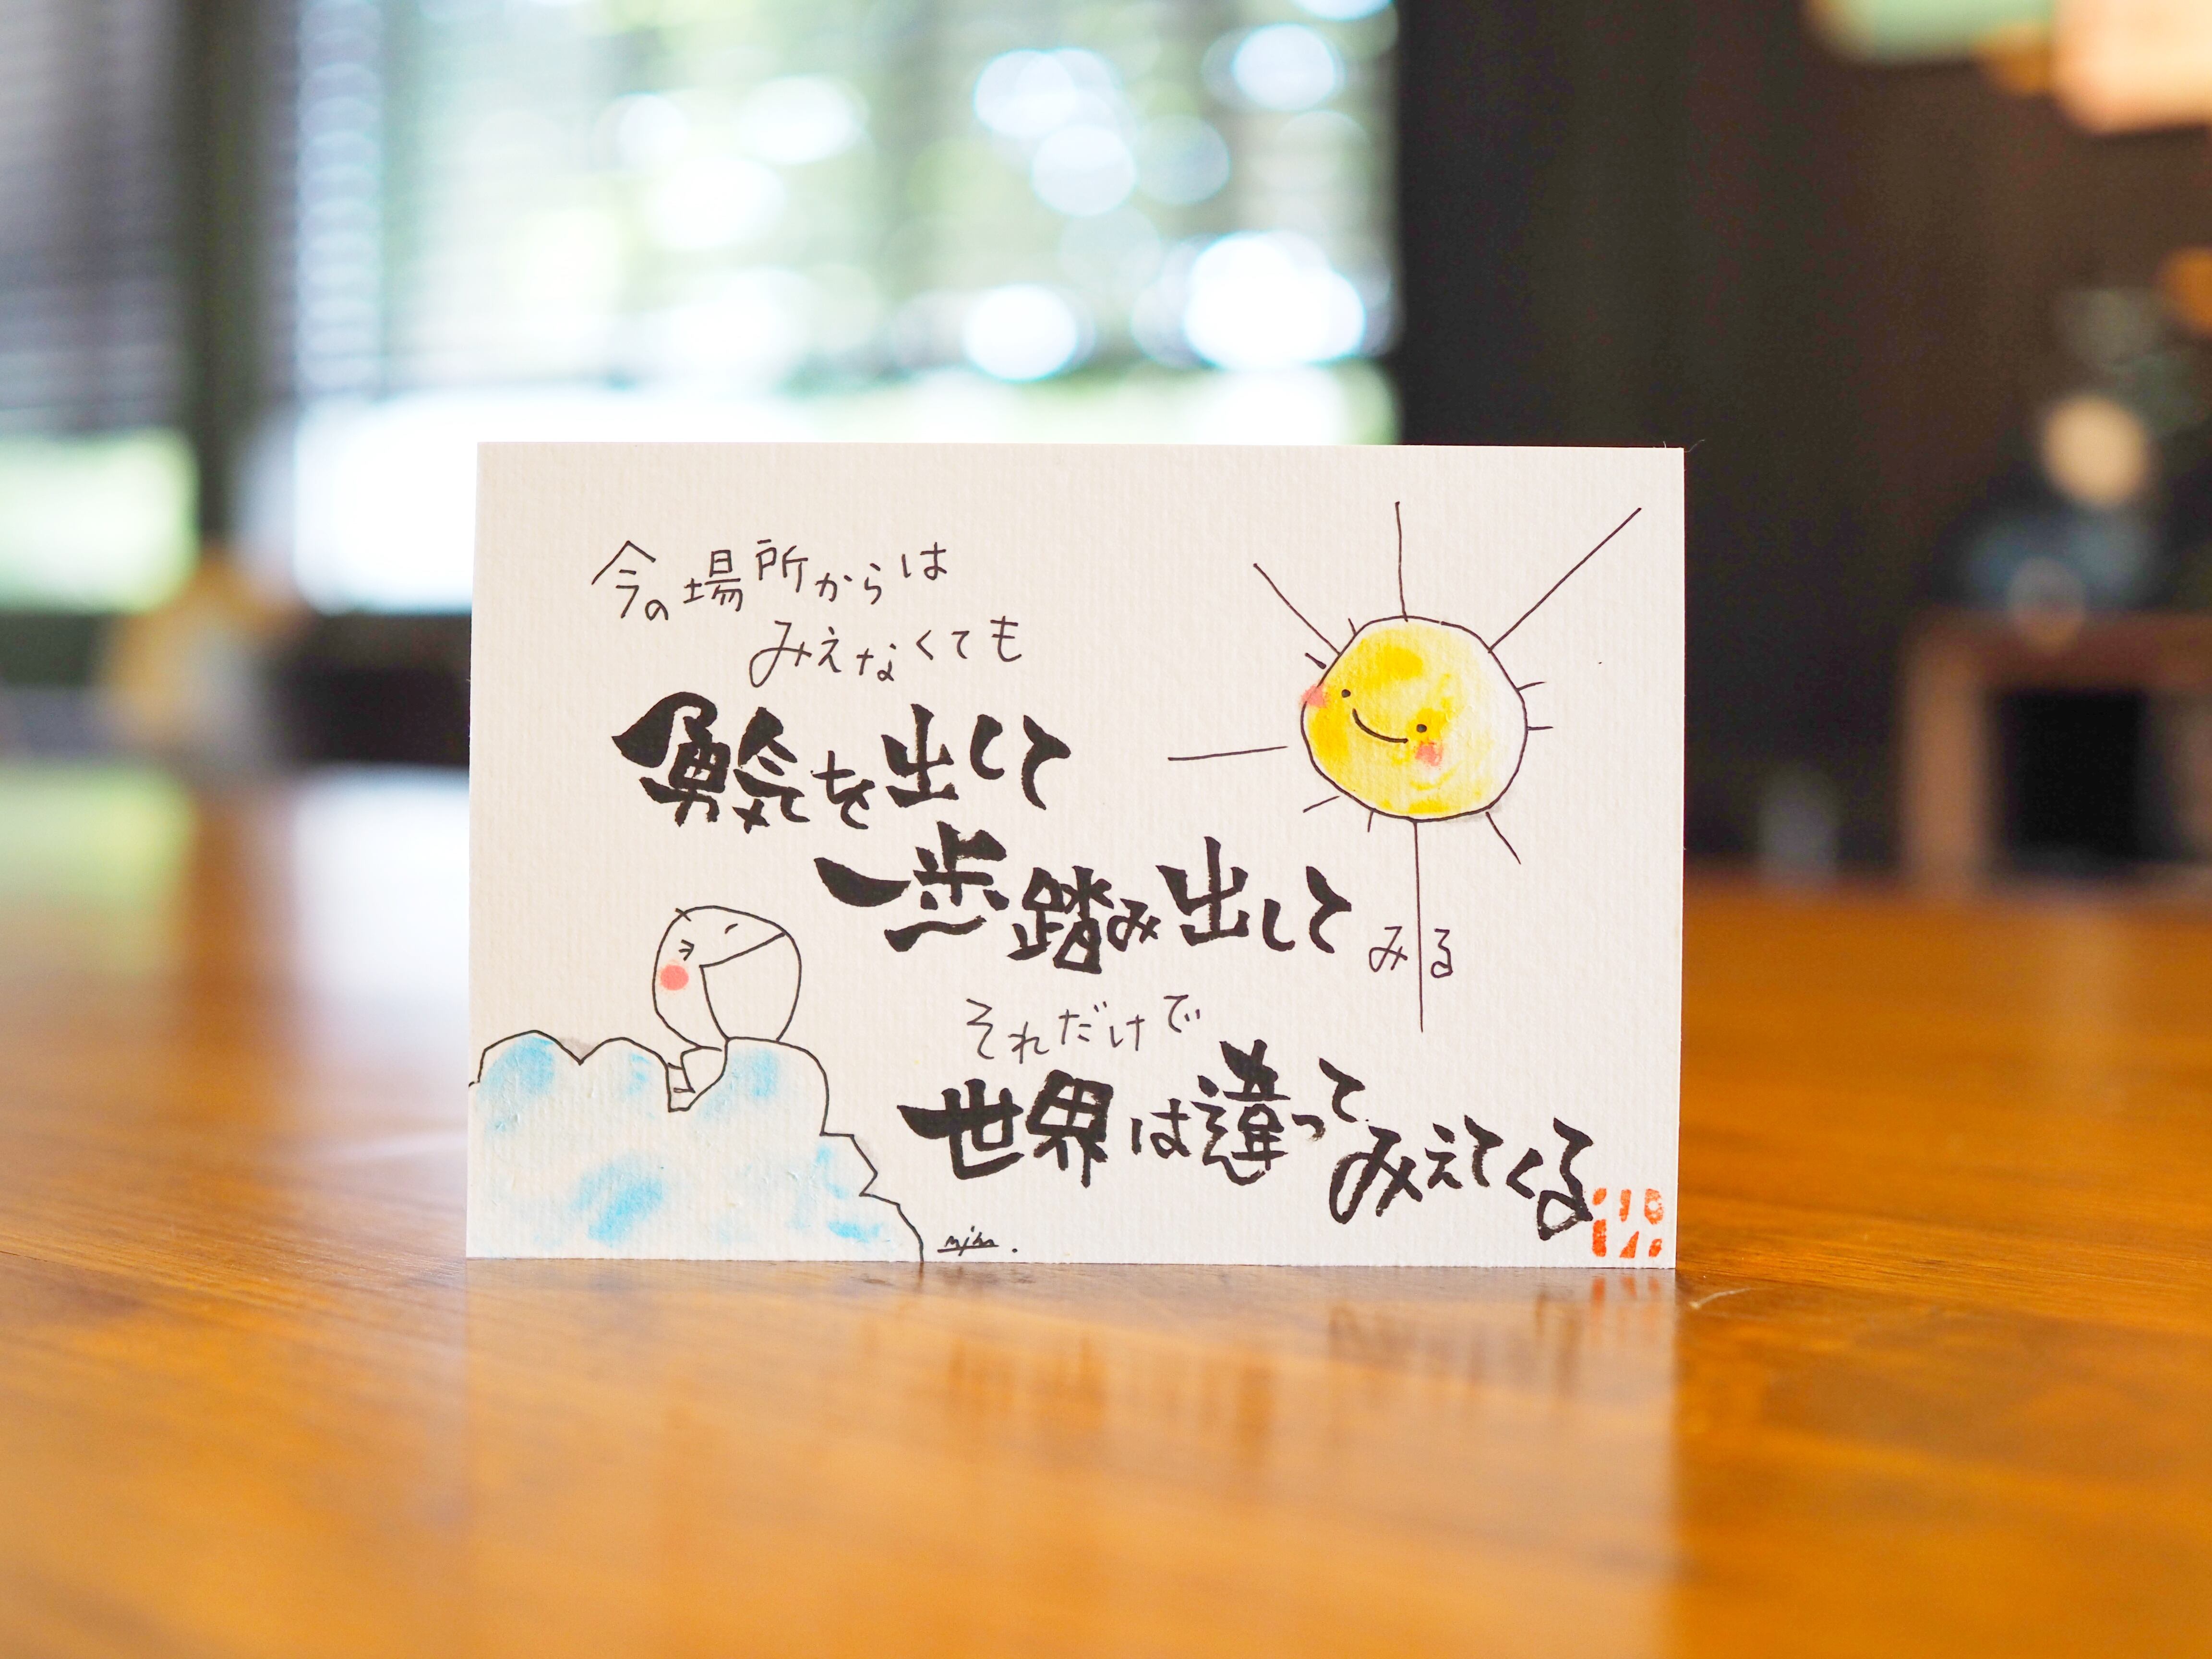 今の場所からは
みえなくても
勇気を出して
一歩踏み出してみる
それだけで
世界は違ってみえてくる